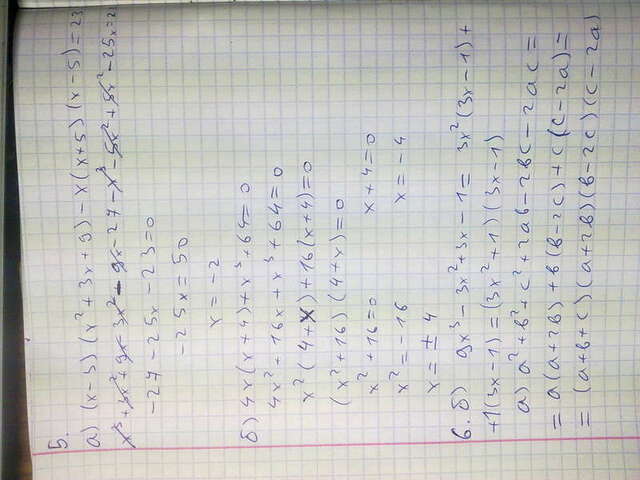 5.
а) (x-3)(x²+3x+9)-x(x+5)(x-5)=23
x³+3x²+9x-3x²-9x-27-x³-5x²+5x²-25x=2
-27-25x-23=0
-25x=50
x=-2
б) 4x(x+4)+x³+64=0
4x²+16x+x³+64=0
x²(4+x)+16(x+4)=0
(x²+16)(4+x)=0
x²+16=0 x+4=0
x²=-16 x=-4
x=±4
6. б) 9x³-3x²+3x-1= 3x²(3x-1)+
+1(3x-1)=(3x²+1)(3x-1)
а) a²+b²+c²+2ab-2bc-2ac=
=a(a+2b)+b(b-2c)+c(c-2a)=
=(a+b+c)(a+2b)(b-2c)(c-2a)